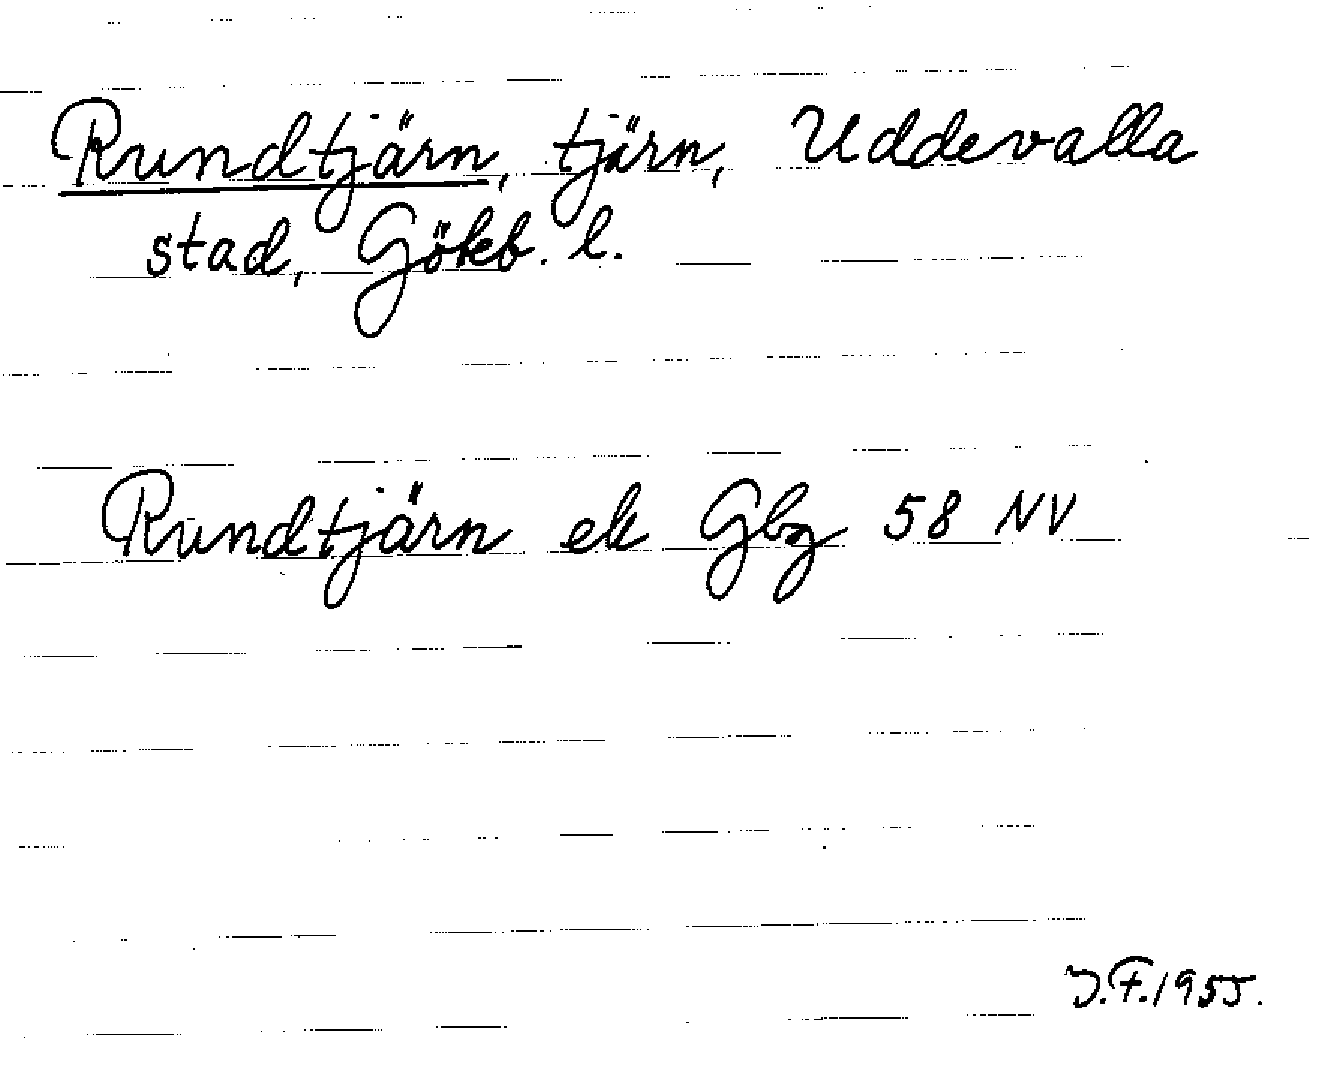 Rundtjärn, tjärn, Uddevalla
stad, Göteb. l.
Rundtjärn ek Gbg 58 NV
J.F. 1955.